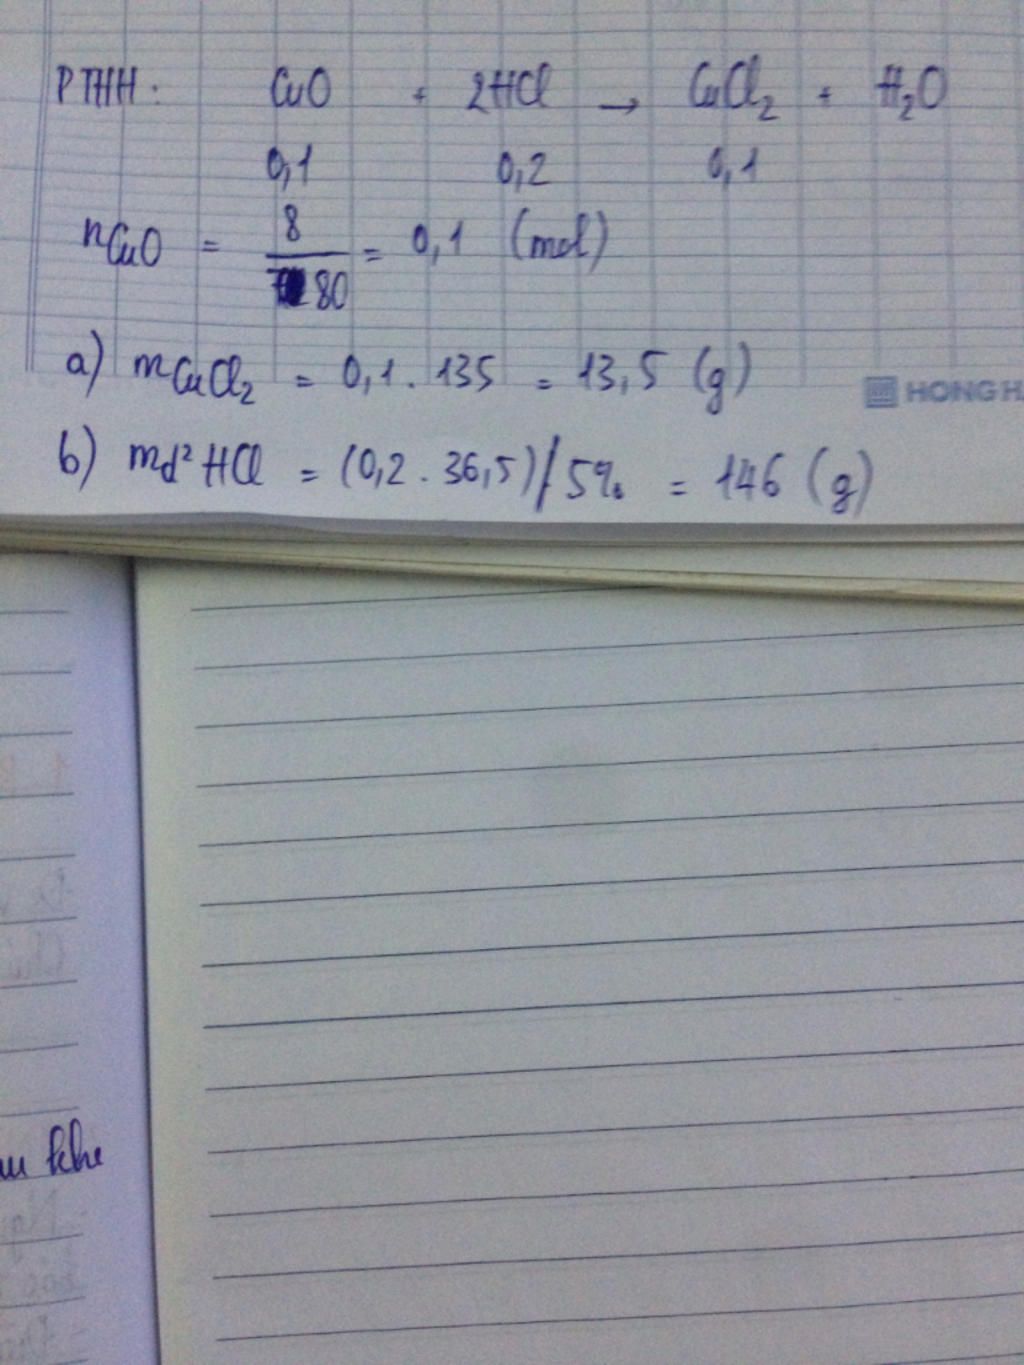 PTHH: CuO + 2HCl → CuCl₂ + H₂O
0,1 0,2 0,1
nCuO = 8/80 = 0,1 (mol)
a) mCuCl₂ = 0,1 . 135 = 13,5 (g)
HONG H
b) md² HCl = (0,2 . 36,5)/5% = 146 (g)
khi